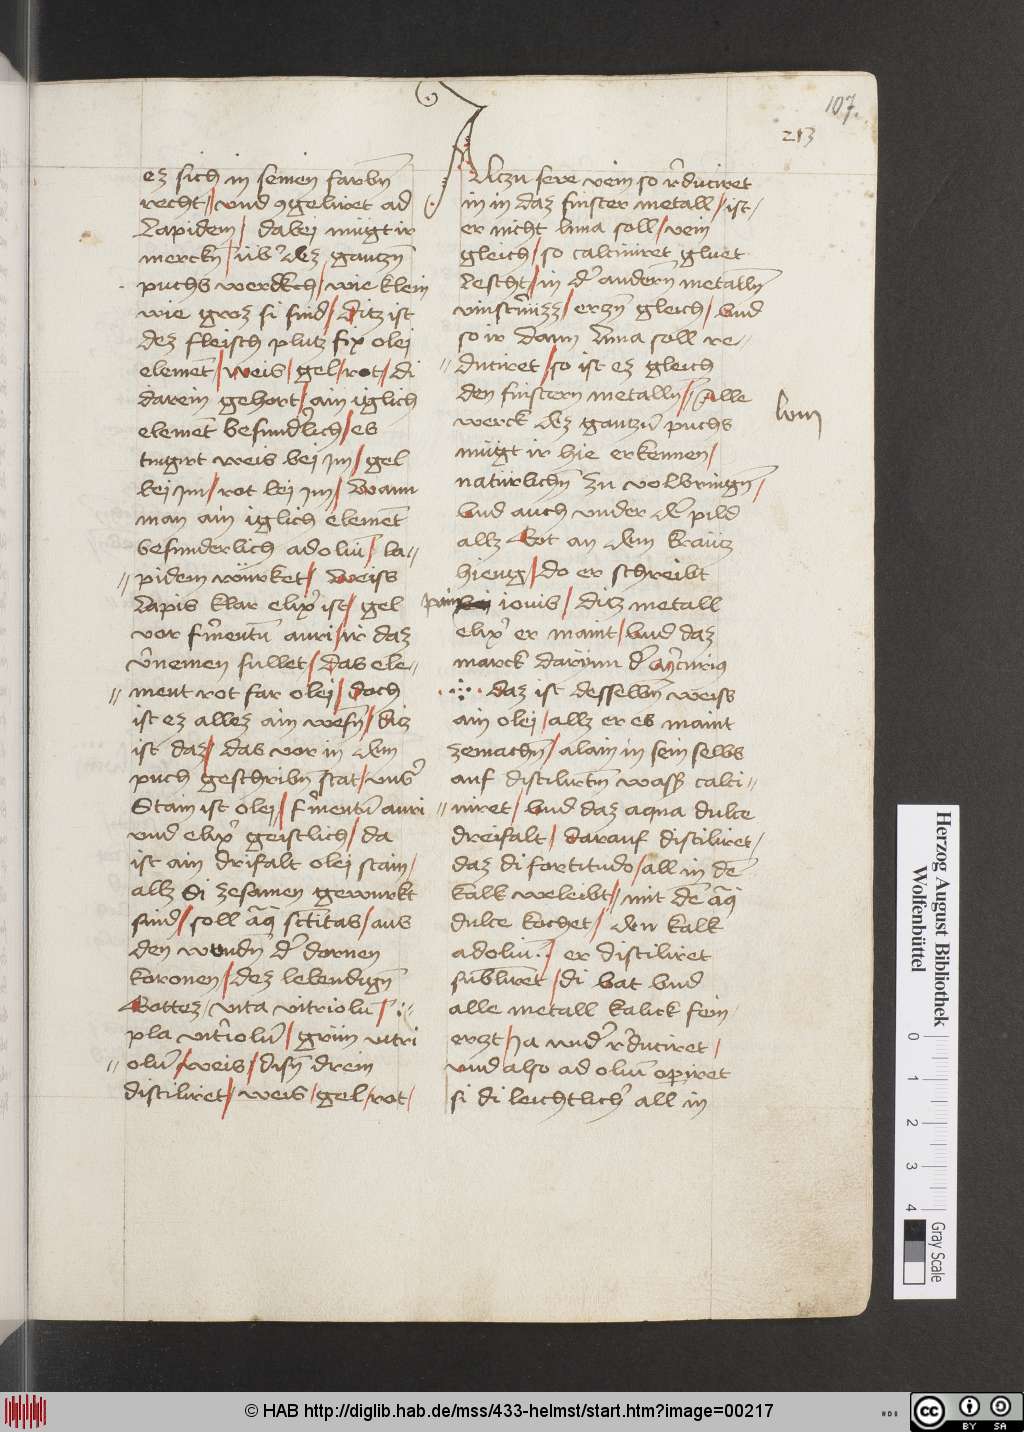 107.
213
ez sich in seinen farbn̄
recht / vnd ꝯgeliret ad
Lapidem / dabei mügt ir
merckn̄ / üb̄ dez gantzn̄
puchs werckch / wie klein
wie groz si sind / Ditz ist
dez fleisch plutz fix olei
elemēt / weis / gel / rot / di
darein gehort / ain iglich
elemēt besund̄lich / es
tingirt weis bei im / gel
bei im / rot bei im / Wann
man ain iglich elemēt
besunderlich ad oliū / la-
pidem würket / Weiss
Lapis klar elix̄ ist / gel
vor f̄mentū auri / ir daz
v̄nemen sullet / Das ele-
ment rot far olei / doch
ist ez allez ain wesn̄ / diz
ist daz / das vor in dem
puch geschribn̄ stat / vns̄
Stain ist olei / f̄mentū auri
vnd elix̄ geistlich / da
ist ain drifalt olei stain /
allz di zesamen gewurkt
sind / soll aq̄ sc̄titas / aus
den wundn̄ d̄ dornen
koronen / dez lebendign̄
Gottez / vita vitriolū /
pla vitriolū / grün vitri
olū / weis / disn̄ drein
distiliret / weis / gel / rot /
Alczu sere vein so r̄duciret
in in daz finster metall / ist /
er nicht luna soll / vein
gleich / so calciniret gluet
Lescht / in d̄ andern metalln̄
erzn̄ gleich / Vnd
so ir dann Luna soll re-
duciret / so ist ez gleich
den finstern metalln̄ / Alle
werck dez gantzn̄ puchs
mügt ir hie erkennen /
natürlichn̄ zu volbringn̄ /
Vnd auch vnder dē pild
allz Got an dem kraütz
hieng / do er schreibt
iouis / ditz metall
elix̄ er maint / Vnd daz
marck darünn d̄ m̄curiꝯ
daz ist desselbn̄ weiss
ain olei / allz er es maint
zemachn̄ / alain in sein selbs
auf distilirtn̄ wass̄ calci-
niret / Vnd daz aqua dulce
dreifalt / darauf distiliret /
daz di fortitudo / all in dē
kalk weleibt / mit dē aq̄
dulce kochet / den kalk
ad oliū / er distiliret
sublim̄et / di hat Vnd
alle metall kalick sein
erzt / Ja wid̄ r̄duciret /
vnd also ad oliū op̄iret
si di leichtlich̄ all in
Herzog August Bibliothek
Wolfenbüttel
0 1 2 3 4
Gray Scale
© HAB http://diglib.hab.de/mss/433-helmst/start.htm?image=00217
HAB
cc BY SA